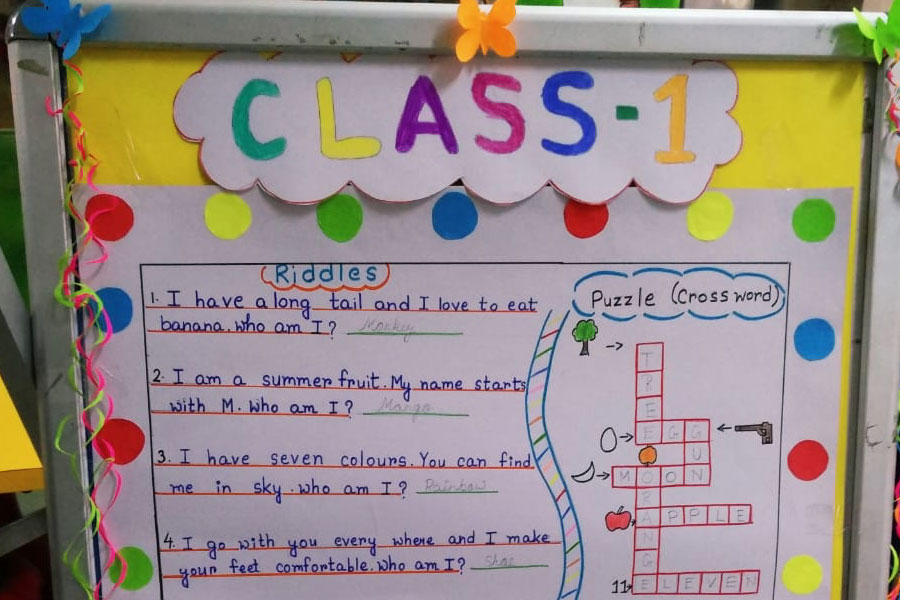 CLASS-1
Riddles
1. I have a long tail and I love to eat
banana. who am I? Monkey
2. I am a summer fruit. My name starts
with M. who am I? Mango
3. I have seven colours. You can find
me in sky. who am I? Rainbow
4. I go with you every where and I make
your feet comfortable. who am I? Shoe
Puzzle (Cross word)
T
R
E
E G G
U
M O O N
R
A P P L E
N
G
11 E L E V E N